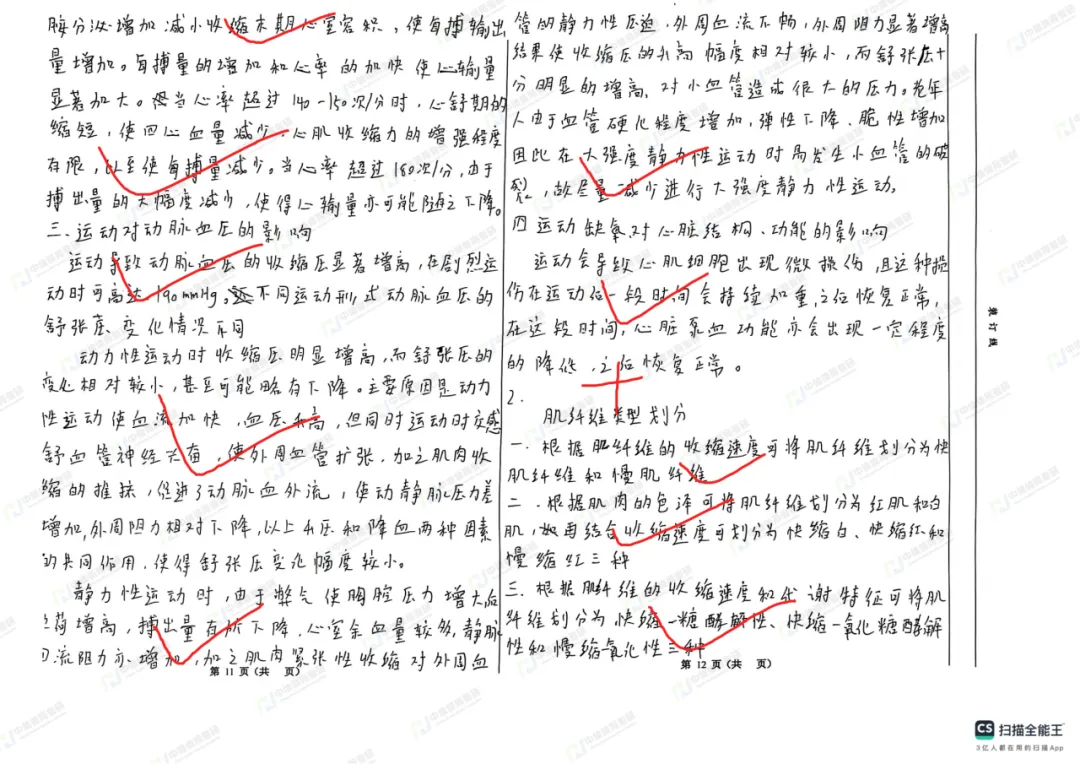 胺分泌增加减小收缩末期心室容积，使每搏输出
量增加。每搏量的增加和心率的加快使心输量
显著加大。但当心率超过140-150次/分时，心舒期的
缩短，使回心血量减少，心肌收缩力的增强程度
有限，以至使每搏量减少。当心率超过180次/分，由于
搏出量的大幅度减少，使得心输量亦可能随之下降。
三、运动对动脉血压的影响
运动导致动脉血压的收缩压显著增高，在剧烈运
动时可高达190mmHg。不同运动形式动脉血压的
舒张压变化情况不同
动力性运动时收缩压明显增高，而舒张压的
变化相对较小，甚至可能略有下降。主要原因是动力
性运动使血流加快，血压升高，但同时运动时交感
舒血管神经兴奋，使外周血管扩张，加之肌肉收
缩的推挤，促进了动脉血外流，使动静脉压力差
增加，外周阻力相对下降，以上升压和降血两种因素
的共同作用，使得舒张压变化幅度较小。
静力性运动时，由于憋气使胸腔压力增大后
负荷增高，搏出量有所下降，心室余血量较多，静脉
回流阻力亦增加，加之肌肉紧张性收缩对外周血
第11页（共 页）
管的静力性压迫，外周血流不畅，外周阻力显著增高
结果使收缩压的升高幅度相对较小，而舒张压十
分明显的增高，对小血管造成很大的压力。老年
人由于血管硬化程度增加，弹性下降、脆性增加
因此在大强度静力性运动时易发生小血管的破
裂，故尽量减少进行大强度静力性运动。
四 运动缺氧对心脏结构、功能的影响
运动会导致心肌细胞出现微损伤，且这种损
伤在运动后一段时间会持续加重，之后恢复正常，
在这段时间，心脏泵血功能亦会出现一定程度
的降低，之后恢复正常。
2.
肌纤维类型划分
一、根据肌纤维的收缩速度可将肌纤维划分为快
肌纤维和慢肌纤维
二、根据肌肉的色泽可将肌纤维划分为红肌和白
肌，如再结合收缩速度可划分为快缩白、快缩红和
慢缩红三种
三、根据肌纤维的收缩速度和代谢特征可将肌
纤维划分为快缩一糖酵解性、快缩一氧化糖酵解
性和慢缩氧化性三种
第12页（共 页）
装订线
中博体育考研
CS 扫描全能王
3亿人都在用的扫描App